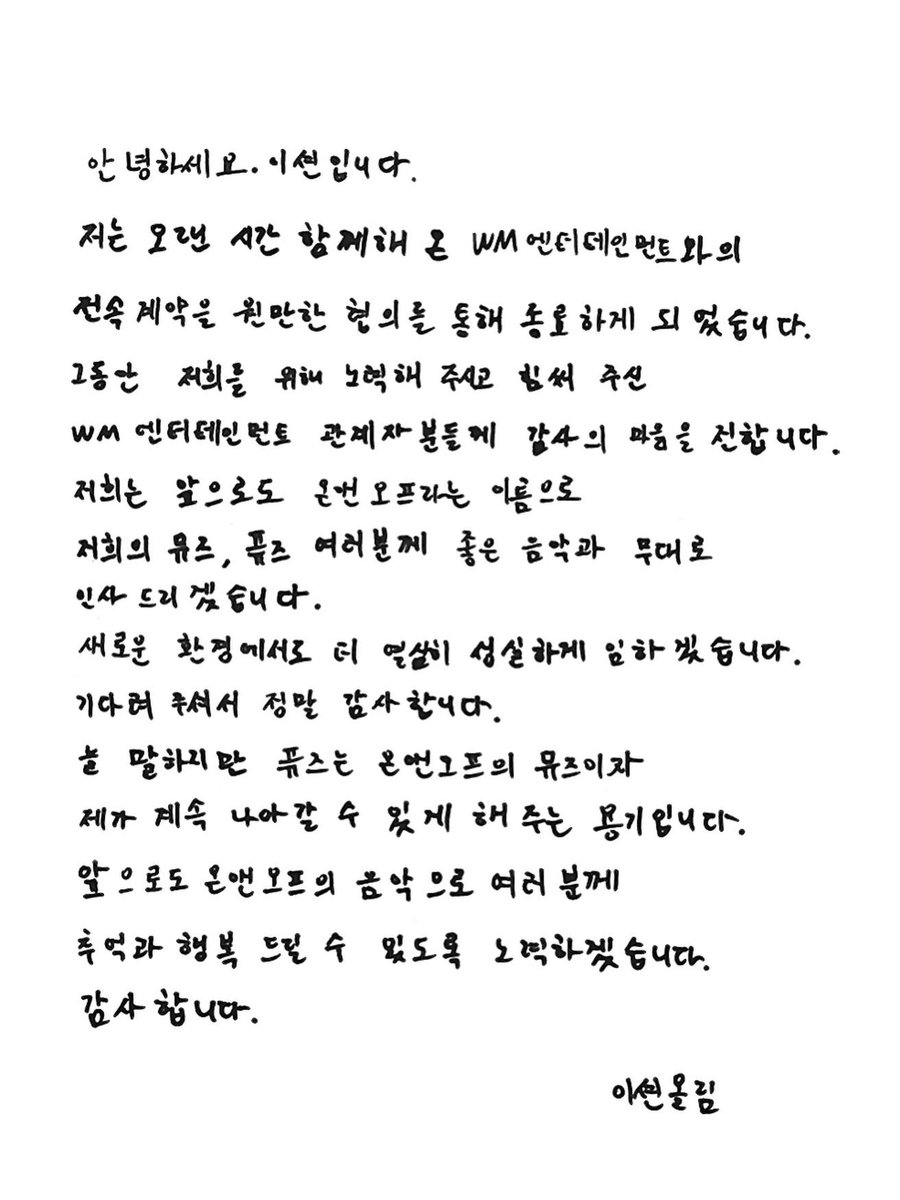 안녕하세요. 이션입니다.
저는 오랜 시간 함께해 온 WM엔터테인먼트와의
전속계약을 원만한 협의를 통해 종료하게 되었습니다.
그동안 저희를 위해 노력해 주시고 힘써 주신
WM엔터테인먼트 관계자분들께 감사의 마음을 전합니다.
저희는 앞으로도 온앤오프라는 이름으로
저희의 뮤즈, 퓨즈 여러분께 좋은 음악과 무대로
인사 드리겠습니다.
새로운 환경에서도 더 열심히 성실하게 임하겠습니다.
기다려 주셔서 정말 감사합니다.
늘 말하지만 퓨즈는 온앤오프의 뮤즈이자
제가 계속 나아갈 수 있게 해 주는 용기입니다.
앞으로도 온앤오프의 음악으로 여러분께
추억과 행복 드릴 수 있도록 노력하겠습니다.
감사합니다.
이션올림